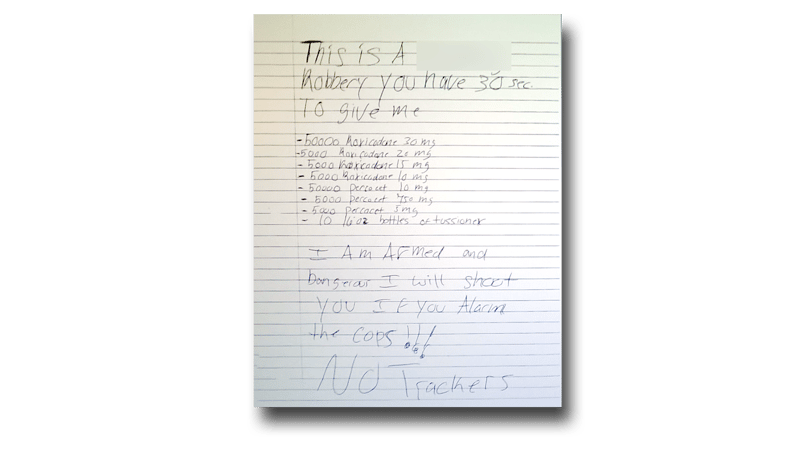 This is A
Robbery you have 30 sec.
To give me
- 50000 Roxicodone 30 mg
- 5000 Roxicodone 20 mg
- 5000 Roxicodone 15 mg
- 5000 Roxicodone 10 mg
- 50000 percocet 10 mg
- 5000 percocet 750 mg
- 5000 percocet 5mg
- 10 16oz bottles of tussioner
I Am Armed and
Dangerous I will shoot
you If you Alarm
the cops!!!
No Trackers